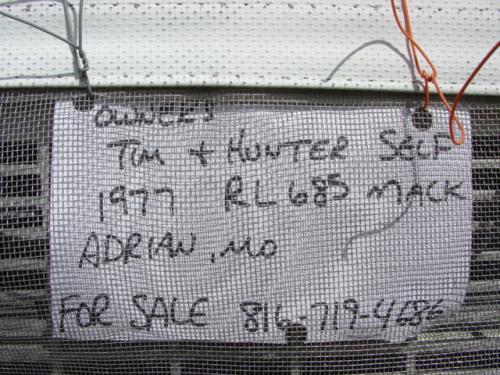 OWNERS
TIM & HUNTER SELF
1977 RL685 MACK
ADRIAN, MO
FOR SALE 816-719-4686